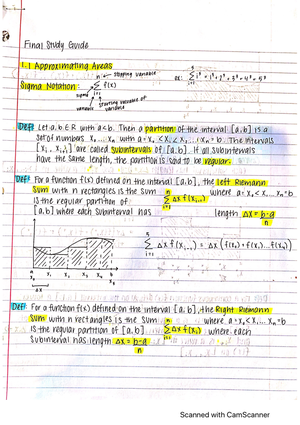 Final Study Guide
1.1 Approximating Areas
n → stopping variable
Sigma Notation: Σ f(x)
i=1
sigma
variable
starting variable of variable
ex: 5 Σ i=1 i³ = 1³ + 2³ + 3³ + 4³ + 5³
Def: Let a, b ∈ R with a<b. Then a partition of the interval [a,b] is a
set of numbers x₀,...xₙ with a=x₀ < x₁ < x₂ ... xₙ = b. The intervals
[xᵢ, xᵢ₊₁] are called subintervals of [a,b]. If all subintervals
have the same length, the partition is said to be regular.
Def: For a function f(x) defined on the interval [a,b], the left Riemann
Sum with n rectangles is the sum n Σ i=1 Δx f(xᵢ₋₁) where a=x₀<x₁...xₙ=b
is the regular partition of
[a,b] where each subinterval has length Δx = b-a/n
5 Σ i=1 Δx f(xᵢ₋₁) = Δx (f(x₀)+f(x₁)...f(x₄))
a x₀ x₁ x₂ x₃ x₄ x₅
Δx
Def: For a function f(x) defined on the interval [a,b], the Right Riemann
Sum with n rectangles is the sum n Σ i=1 Δx f(xᵢ) where a=x₀<x₁...xₙ=b
is the regular partition of [a,b] where each
subinterval has length Δx = b-a/n
Scanned with CamScanner